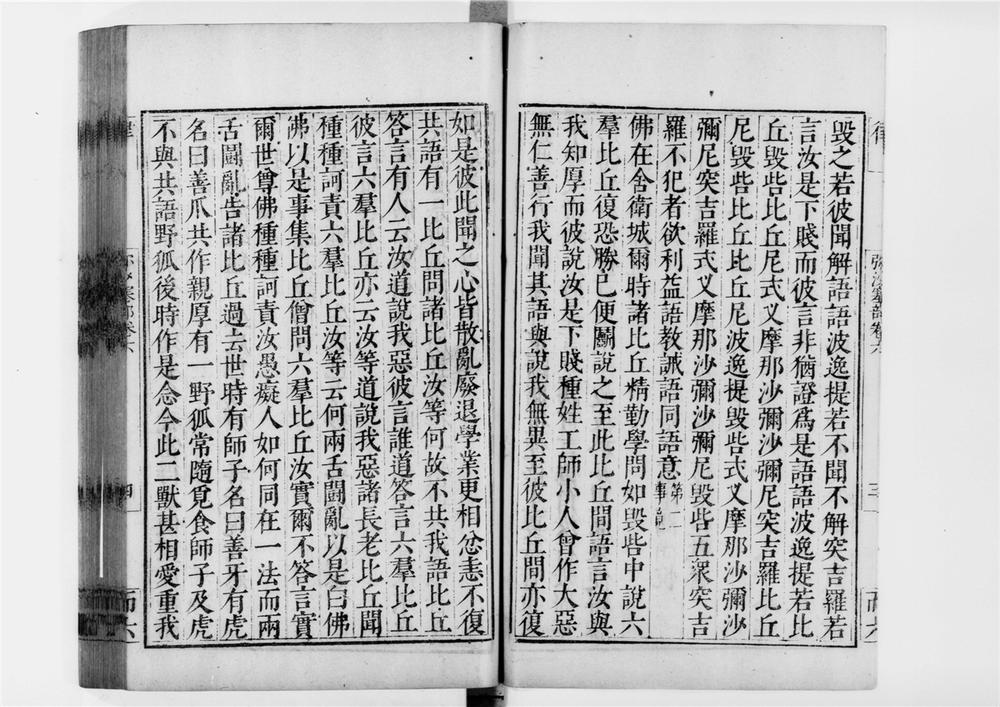 毀之若彼聞解語語波逸提若不聞不解突吉羅若
言汝是下賤而彼言非猶證爲是語語波逸提若比
丘毀呰比丘尼式叉摩那沙彌沙彌尼突吉羅比丘
尼毀呰比丘比丘尼波逸提毀呰式叉摩那沙彌沙
彌尼突吉羅式叉摩那沙彌沙彌尼毀呰五衆突吉
羅不犯者欲利益語教誡語同語意第二事竟
佛在舍衛城爾時諸比丘精勤學問如毀呰中說六
羣比丘復恐勝已便鬭說之至此比丘間語言汝與
我知厚而彼說汝是下賤種姓工師小人曾作大惡
無仁善行我聞其語與說我無異至彼比丘間亦復
如是彼此聞之心皆散亂廢退學業更相忿恚不復
共語有一比丘問諸比丘汝等何故不共我語比丘
答言有人云汝道說我惡彼言誰道答言六羣比丘
彼言六羣比丘亦云汝等道說我惡諸長老比丘聞
種種訶責六羣比丘汝等云何兩舌鬭亂以是白佛
佛以是事集比丘僧問六羣比丘汝實爾不答言實
爾世尊佛種種訶責汝愚癡人如何同在一法而兩
舌鬭亂告諸比丘過去世時有師子名曰善牙有虎
名曰善爪共作親厚有一野狐常隨覓食師子及虎
不與共語野狐後時作是念今此二獸甚相愛重我